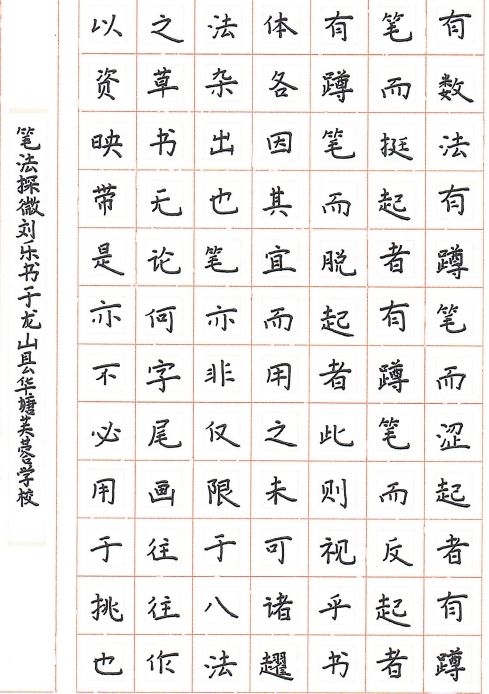 有数法有蹲笔而涩起者有蹲
笔而挺起者有蹲笔而反起者
有蹲笔而脱起者此则视乎书
体各因其宜而用之未可诸趯
法杂出也笔亦非仅限于八法
之草书无论何字尾画往往作
以资映带是亦不必用于挑也
笔法探微刘乐书于龙山县华塘芙蓉学校